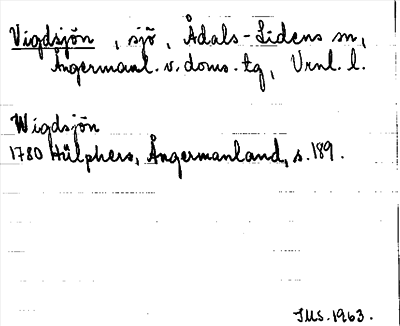 Vigdsjön, sjö, Ådals-Lidens sn,
Ångermanl. v. doms. tg, Vrnl. l.
Wigdsjön
1780 Hülphers, Ångermanland, s. 189.
JMS. 1963.